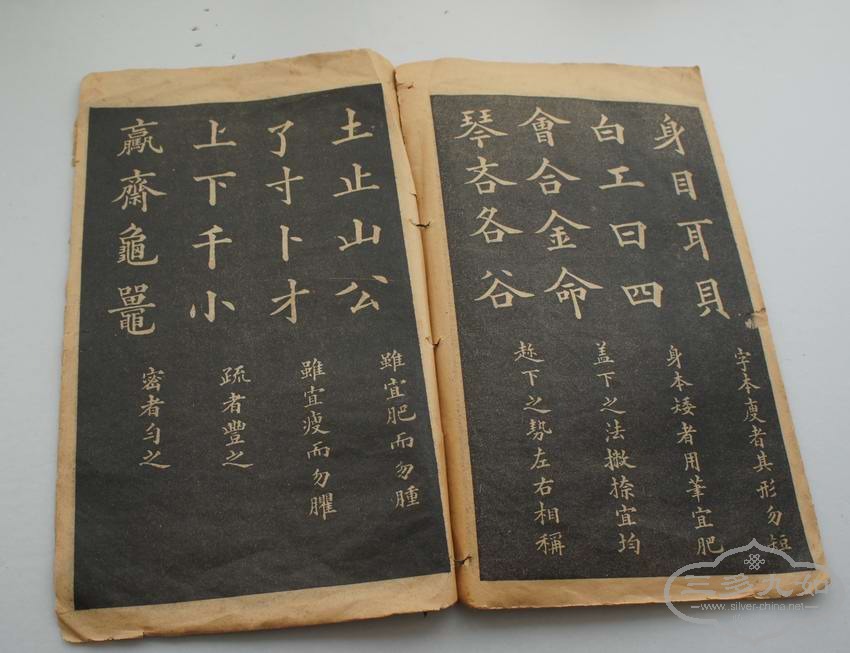 身目耳貝
字本瘦者其形勿短
白工曰四
身本矮者用筆宜肥
會合金命
盖下之法撇捺宜均
琴吝各谷
趂下之勢左右相稱
土止山公
雖宜肥而勿腫
了寸卜才
雖宜瘦而勿臞
上下千小
疏者豐之
羸齋龜鼉
密者勻之
三多九如
www.silver-china.net